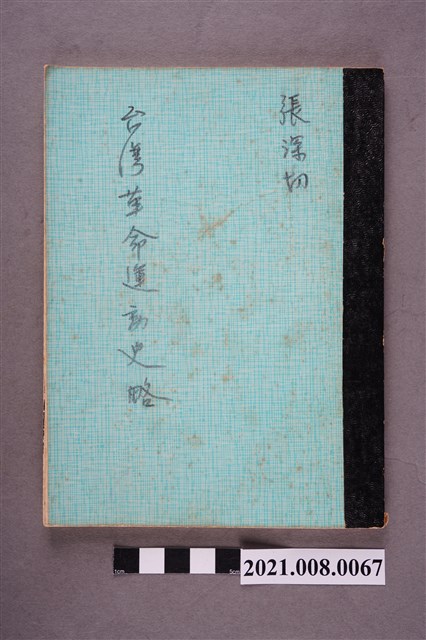 張深切
台湾革命運動史略
1cm
5cm
2021.008.0067